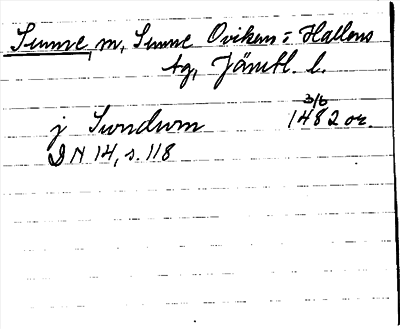 Sunne, m, Sunne Ovikens o Hallens
tg, Jämtl. l.
3/6
j Sundum 1482 or.
DN 14, s. 118